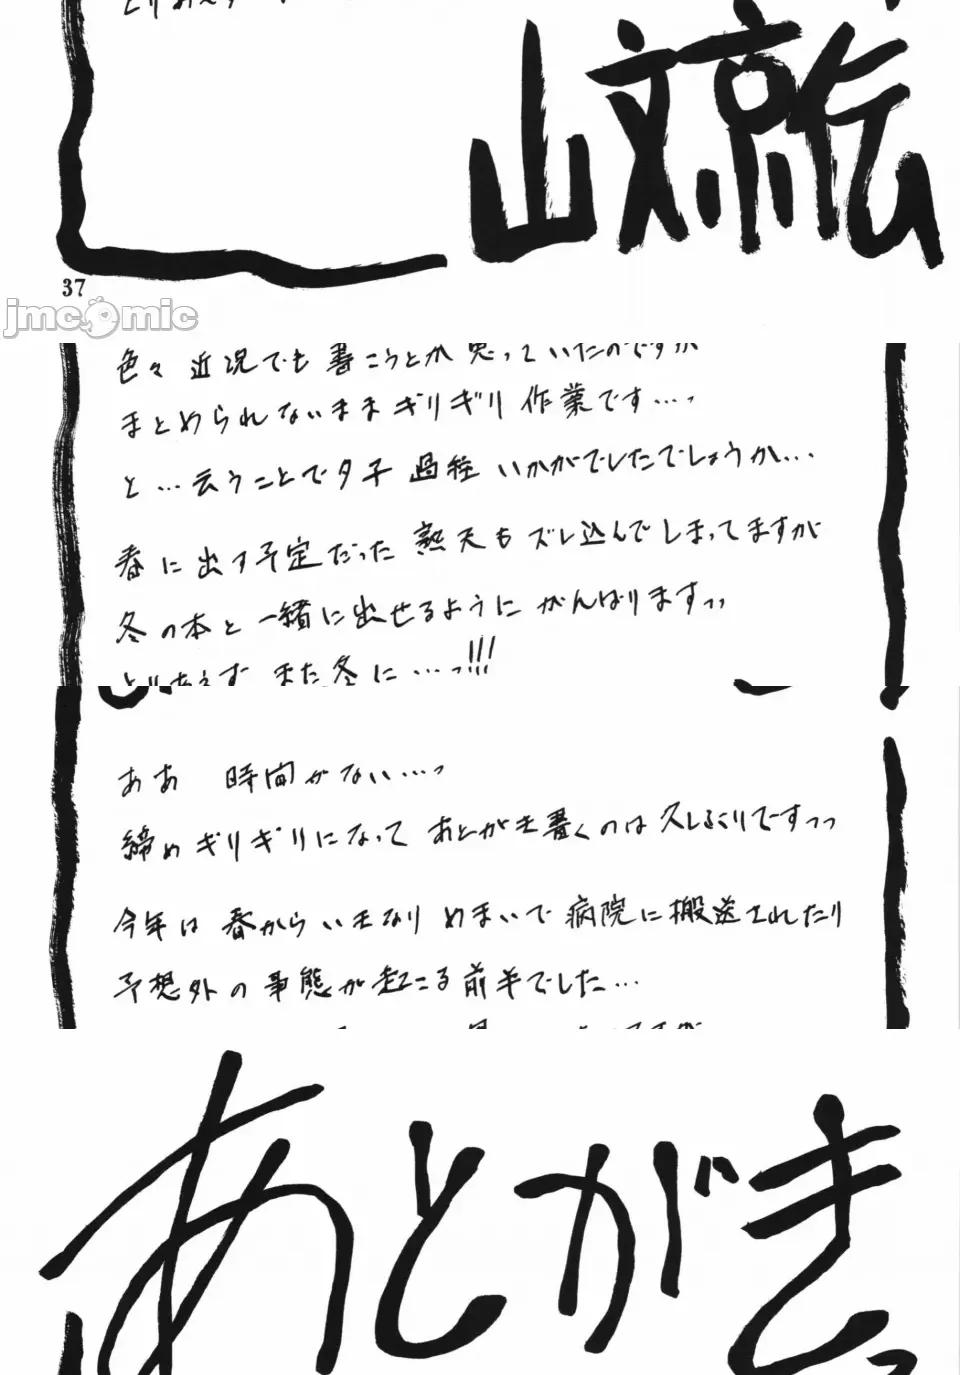 山文京伝
37
jmcomic
色々 近況でも 書こうとか 思っていたのですが
まとめられないまま ギリギリ 作業です…っ
と…云うことで 夕子 過程 いかがでしたでしょうか…
春に出す予定だった 熟天も ズレ込んでしまってますが
冬の本と 一緒に出せるように がんばりますっっ
とりあえず また冬に…っ!!!
ああ 時間がない…っ
締めギリギリになって あとがき書くのは 久しぶりですっっ
今年は 春から いきなり めまいで 病院に搬送されたり
予想外の 事態が起こる 前半でした…
あとがき